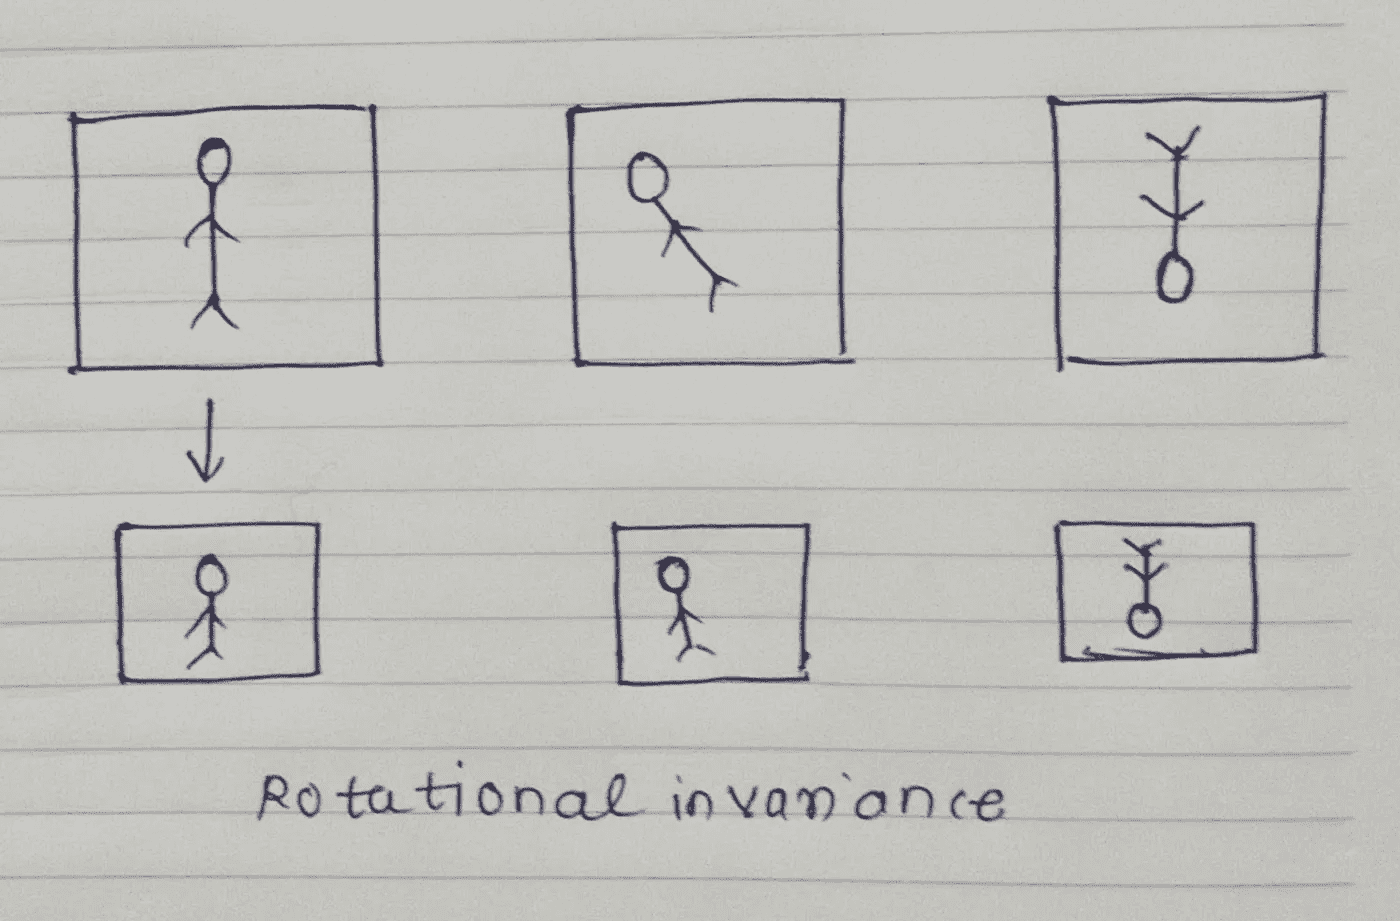 Rotational invariance